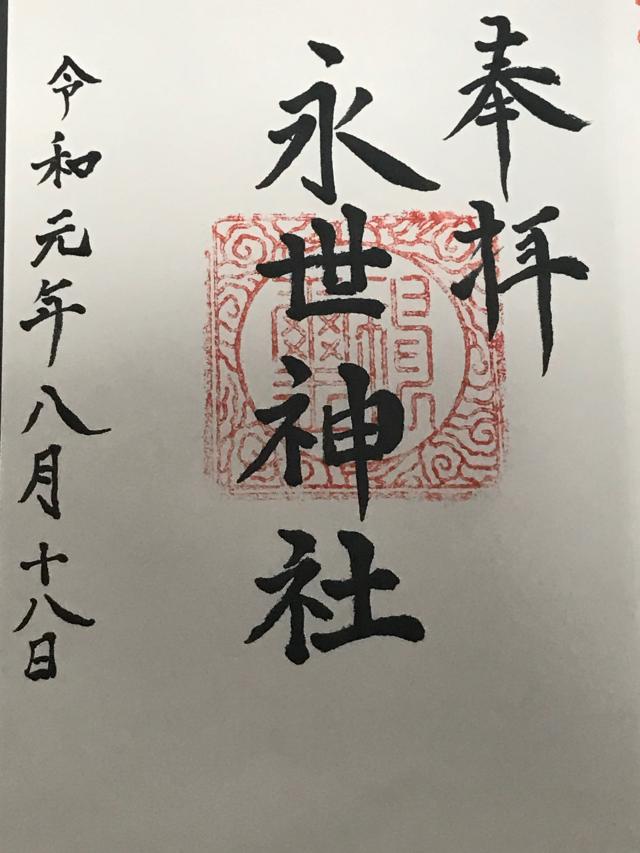 奉拝
永世神社
令和元年八月十八日